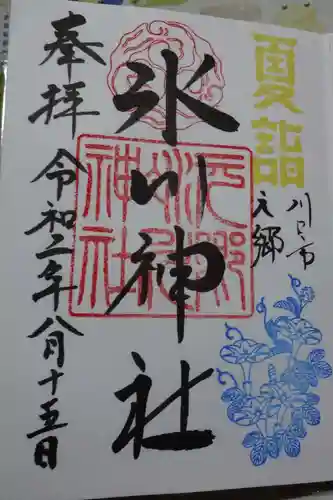 夏詣
川口市
元郷
氷川神社
奉拝
令和二年八月十五日
元郷
氷川
神社